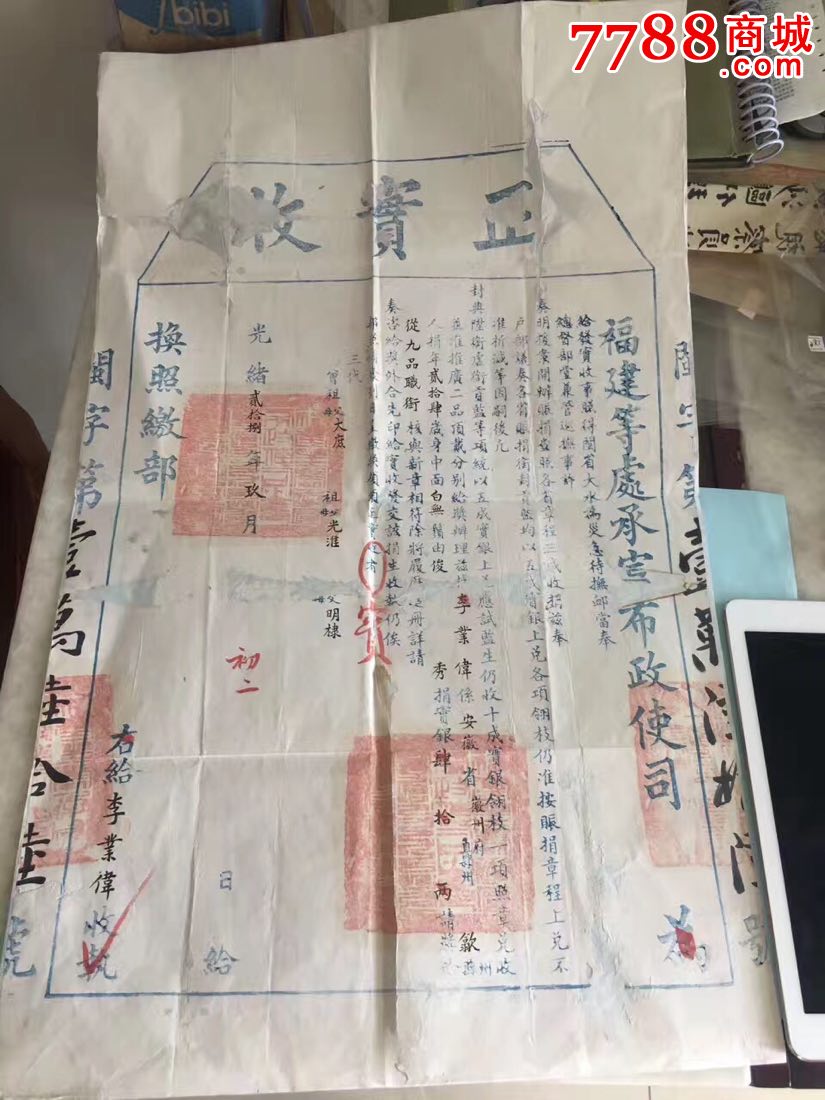 bibi
7788商城
.com
正實收
閩字第壹萬陸拾陸號
福建等處承宣布政使司為
給發實收事照得閩省大水為災急待撫卹當奉
總督部堂兼管巡撫事許
奏明援案開辦賑捐並照各省章程三成收捐茲奉
戶部議奏各省賑捐銜封貢監均以五成實銀上兌各項翎枝仍准按賑捐章程上兌不
准折減等因嗣後凡
封典陞銜虛銜貢監等項統以五成實銀上兌應試監生仍收十成實銀翎枝一項照章兌收
並准推廣二品頂戴分別給獎辦理茲據李業偉係安徽省徽州府歙
直隸州
州
人捐年貳拾肆歲身中面白無鬚由俊秀捐實銀肆拾兩請獎
從九品職銜核與新章相符除將履歷造冊詳請
奏咨給獎外合先印給實收發交該捐生收執仍俟
實
三代
曾祖父母大庶
祖父母光淮
父母明棣
光緒貳拾捌年玖月
初二
日給
換照繳部
右給李業偉收執
閩字第壹萬陸拾陸號